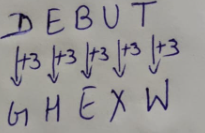 D E B U T
↓+3 ↓+3 ↓+3 ↓+3 ↓+3
G H E X W